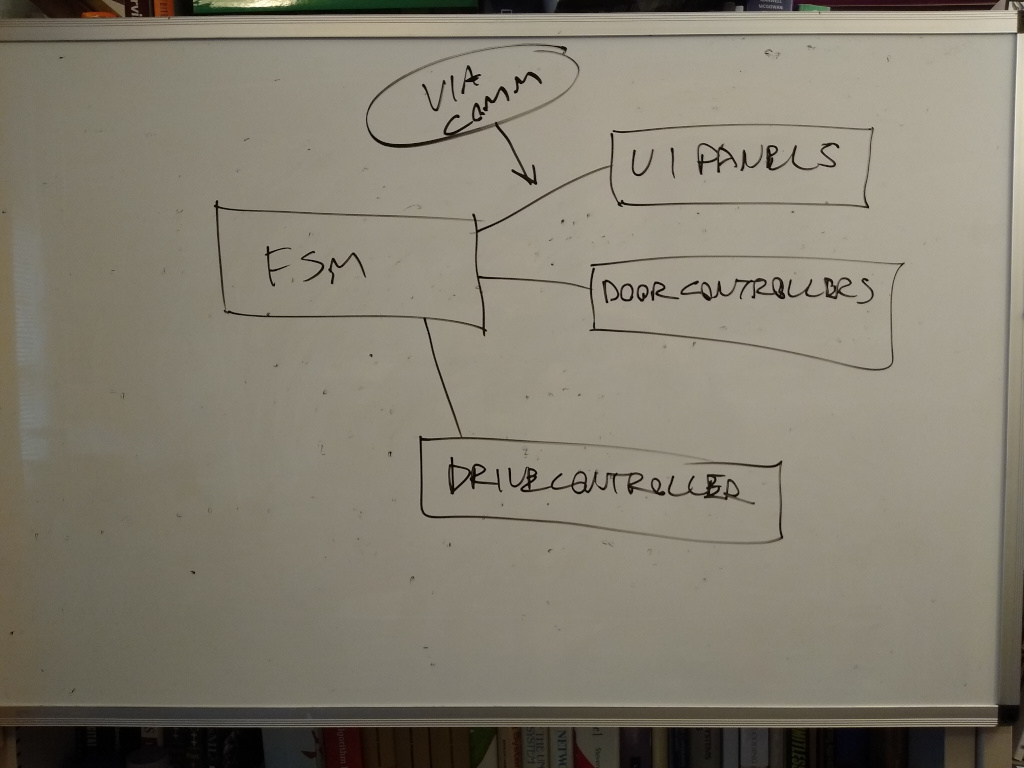 VIA
COMM
UI PANELS
FSM
DOOR CONTROLLERS
DRIVE CONTROLLER